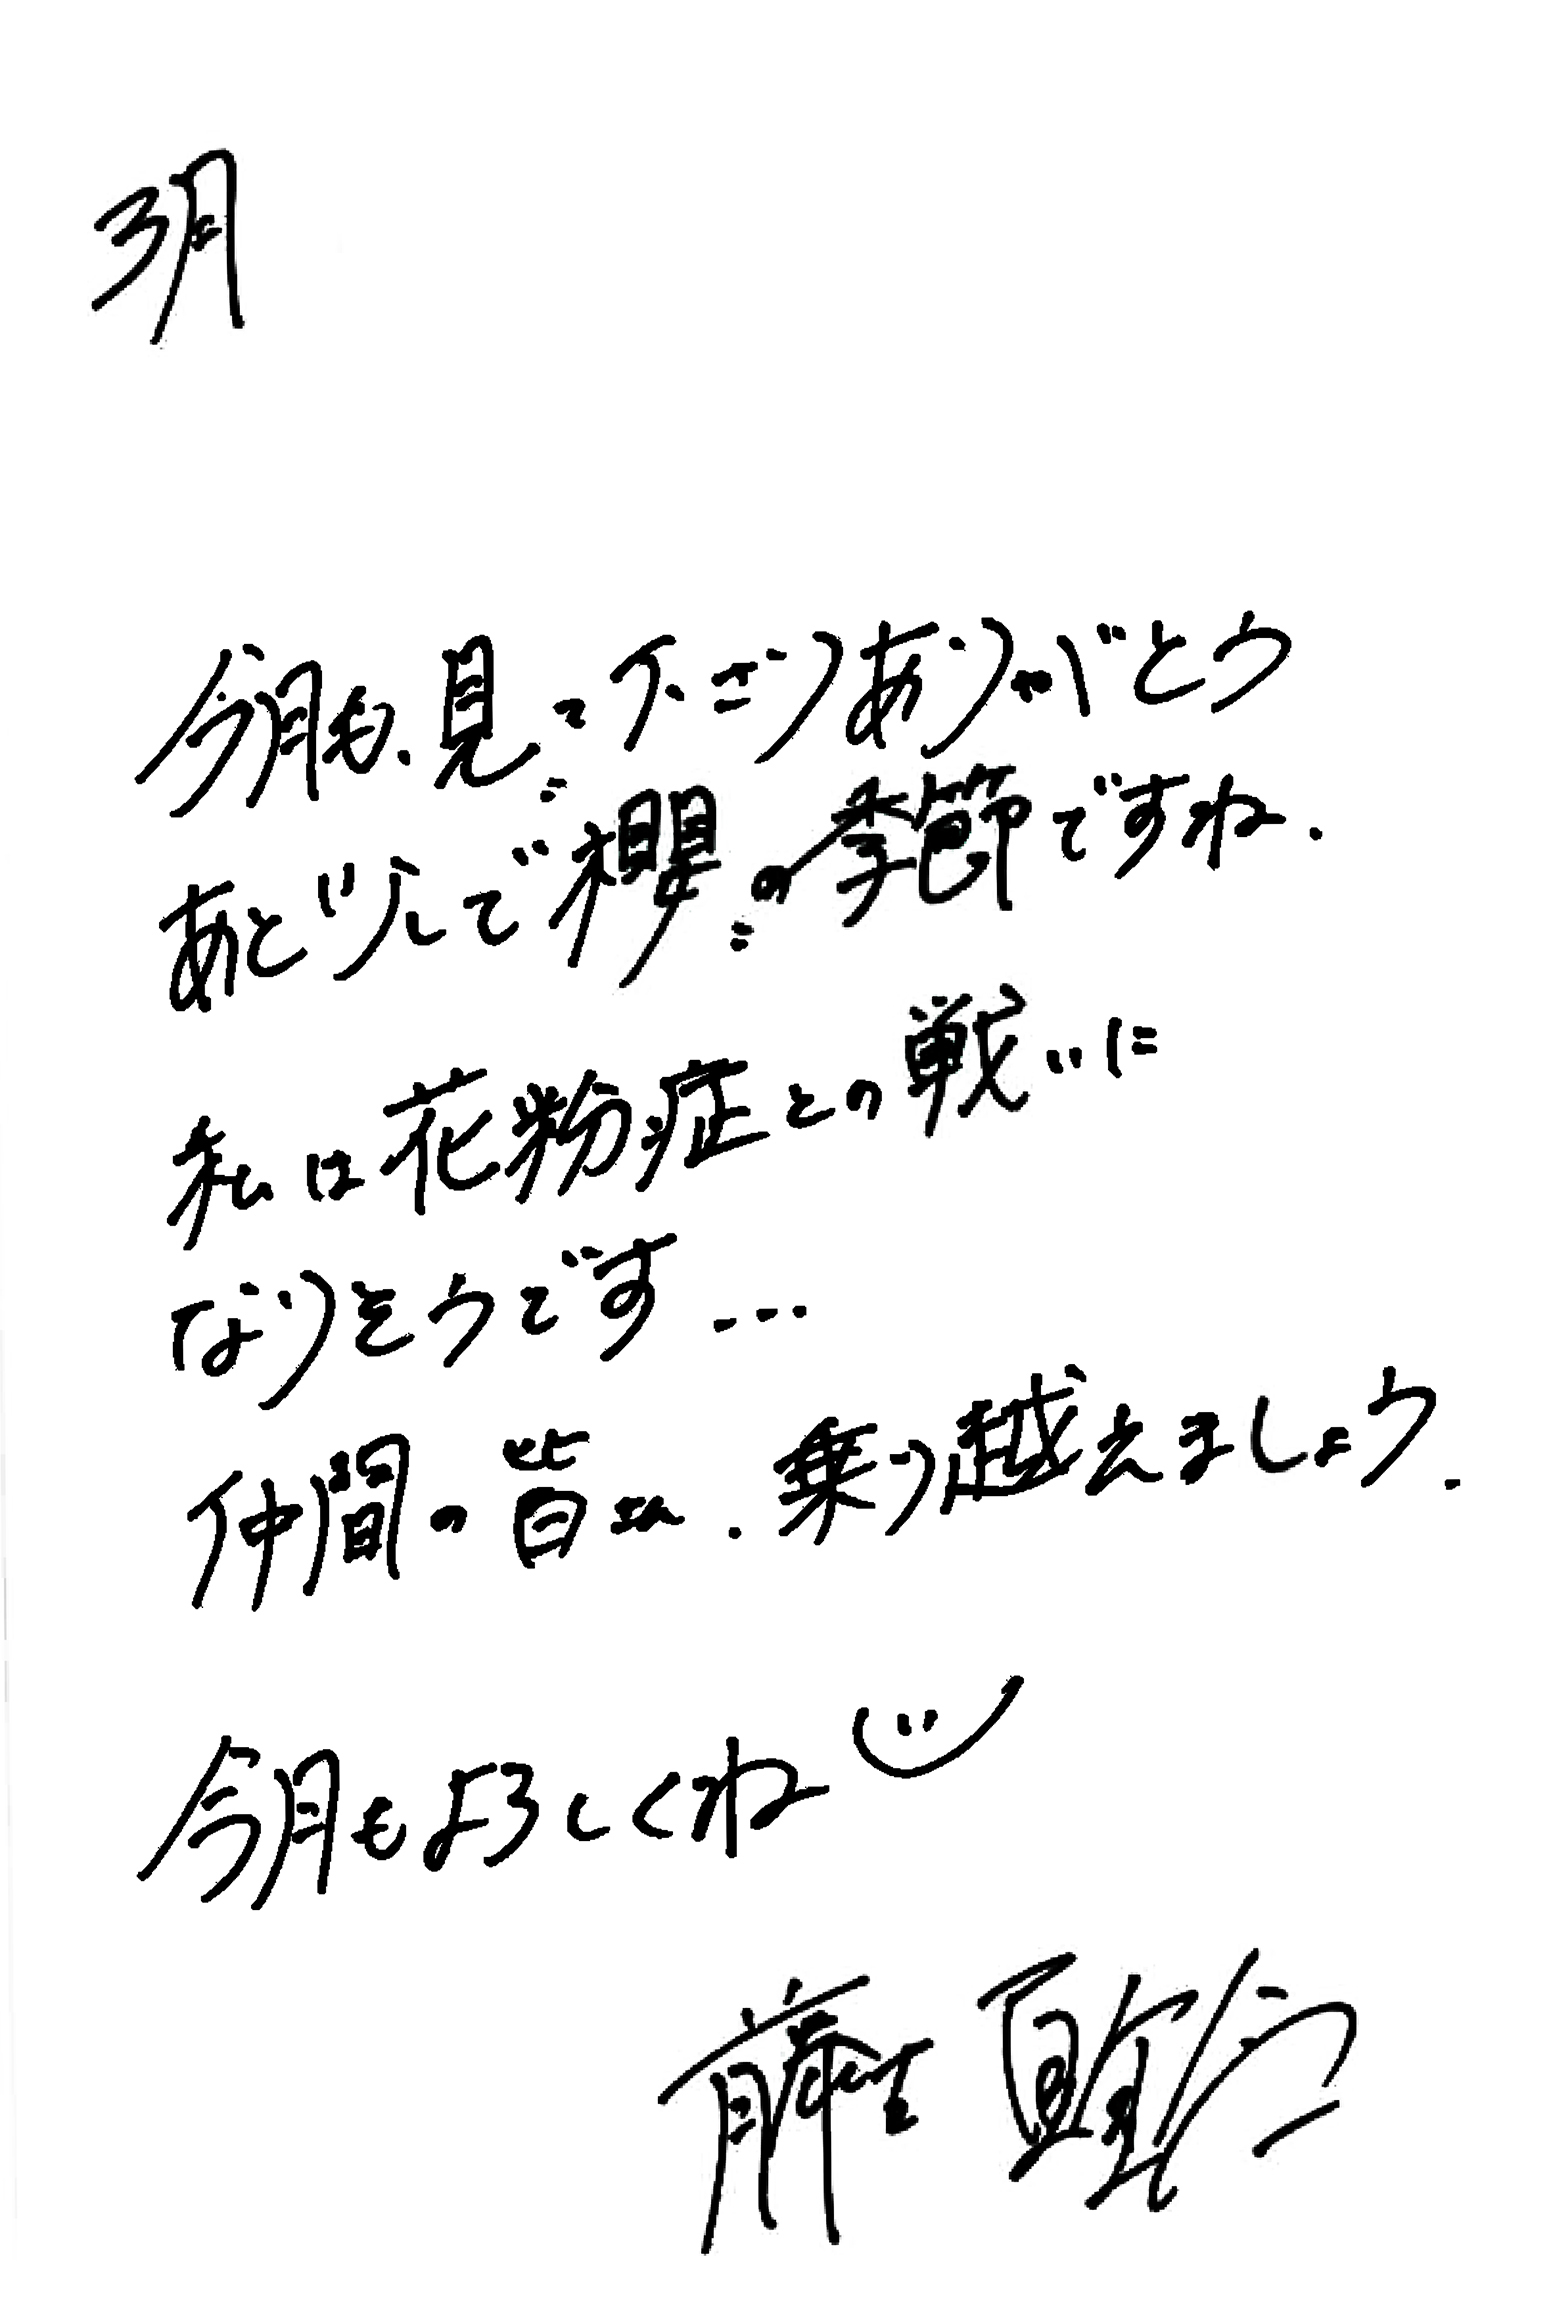 3月
今月も、見て下さりありがとう
あと少しで櫻の季節ですね.
私は花粉症との戦いに
なりそうです…
仲間の皆さん.乗り越えましょう.
今月もよろしくね